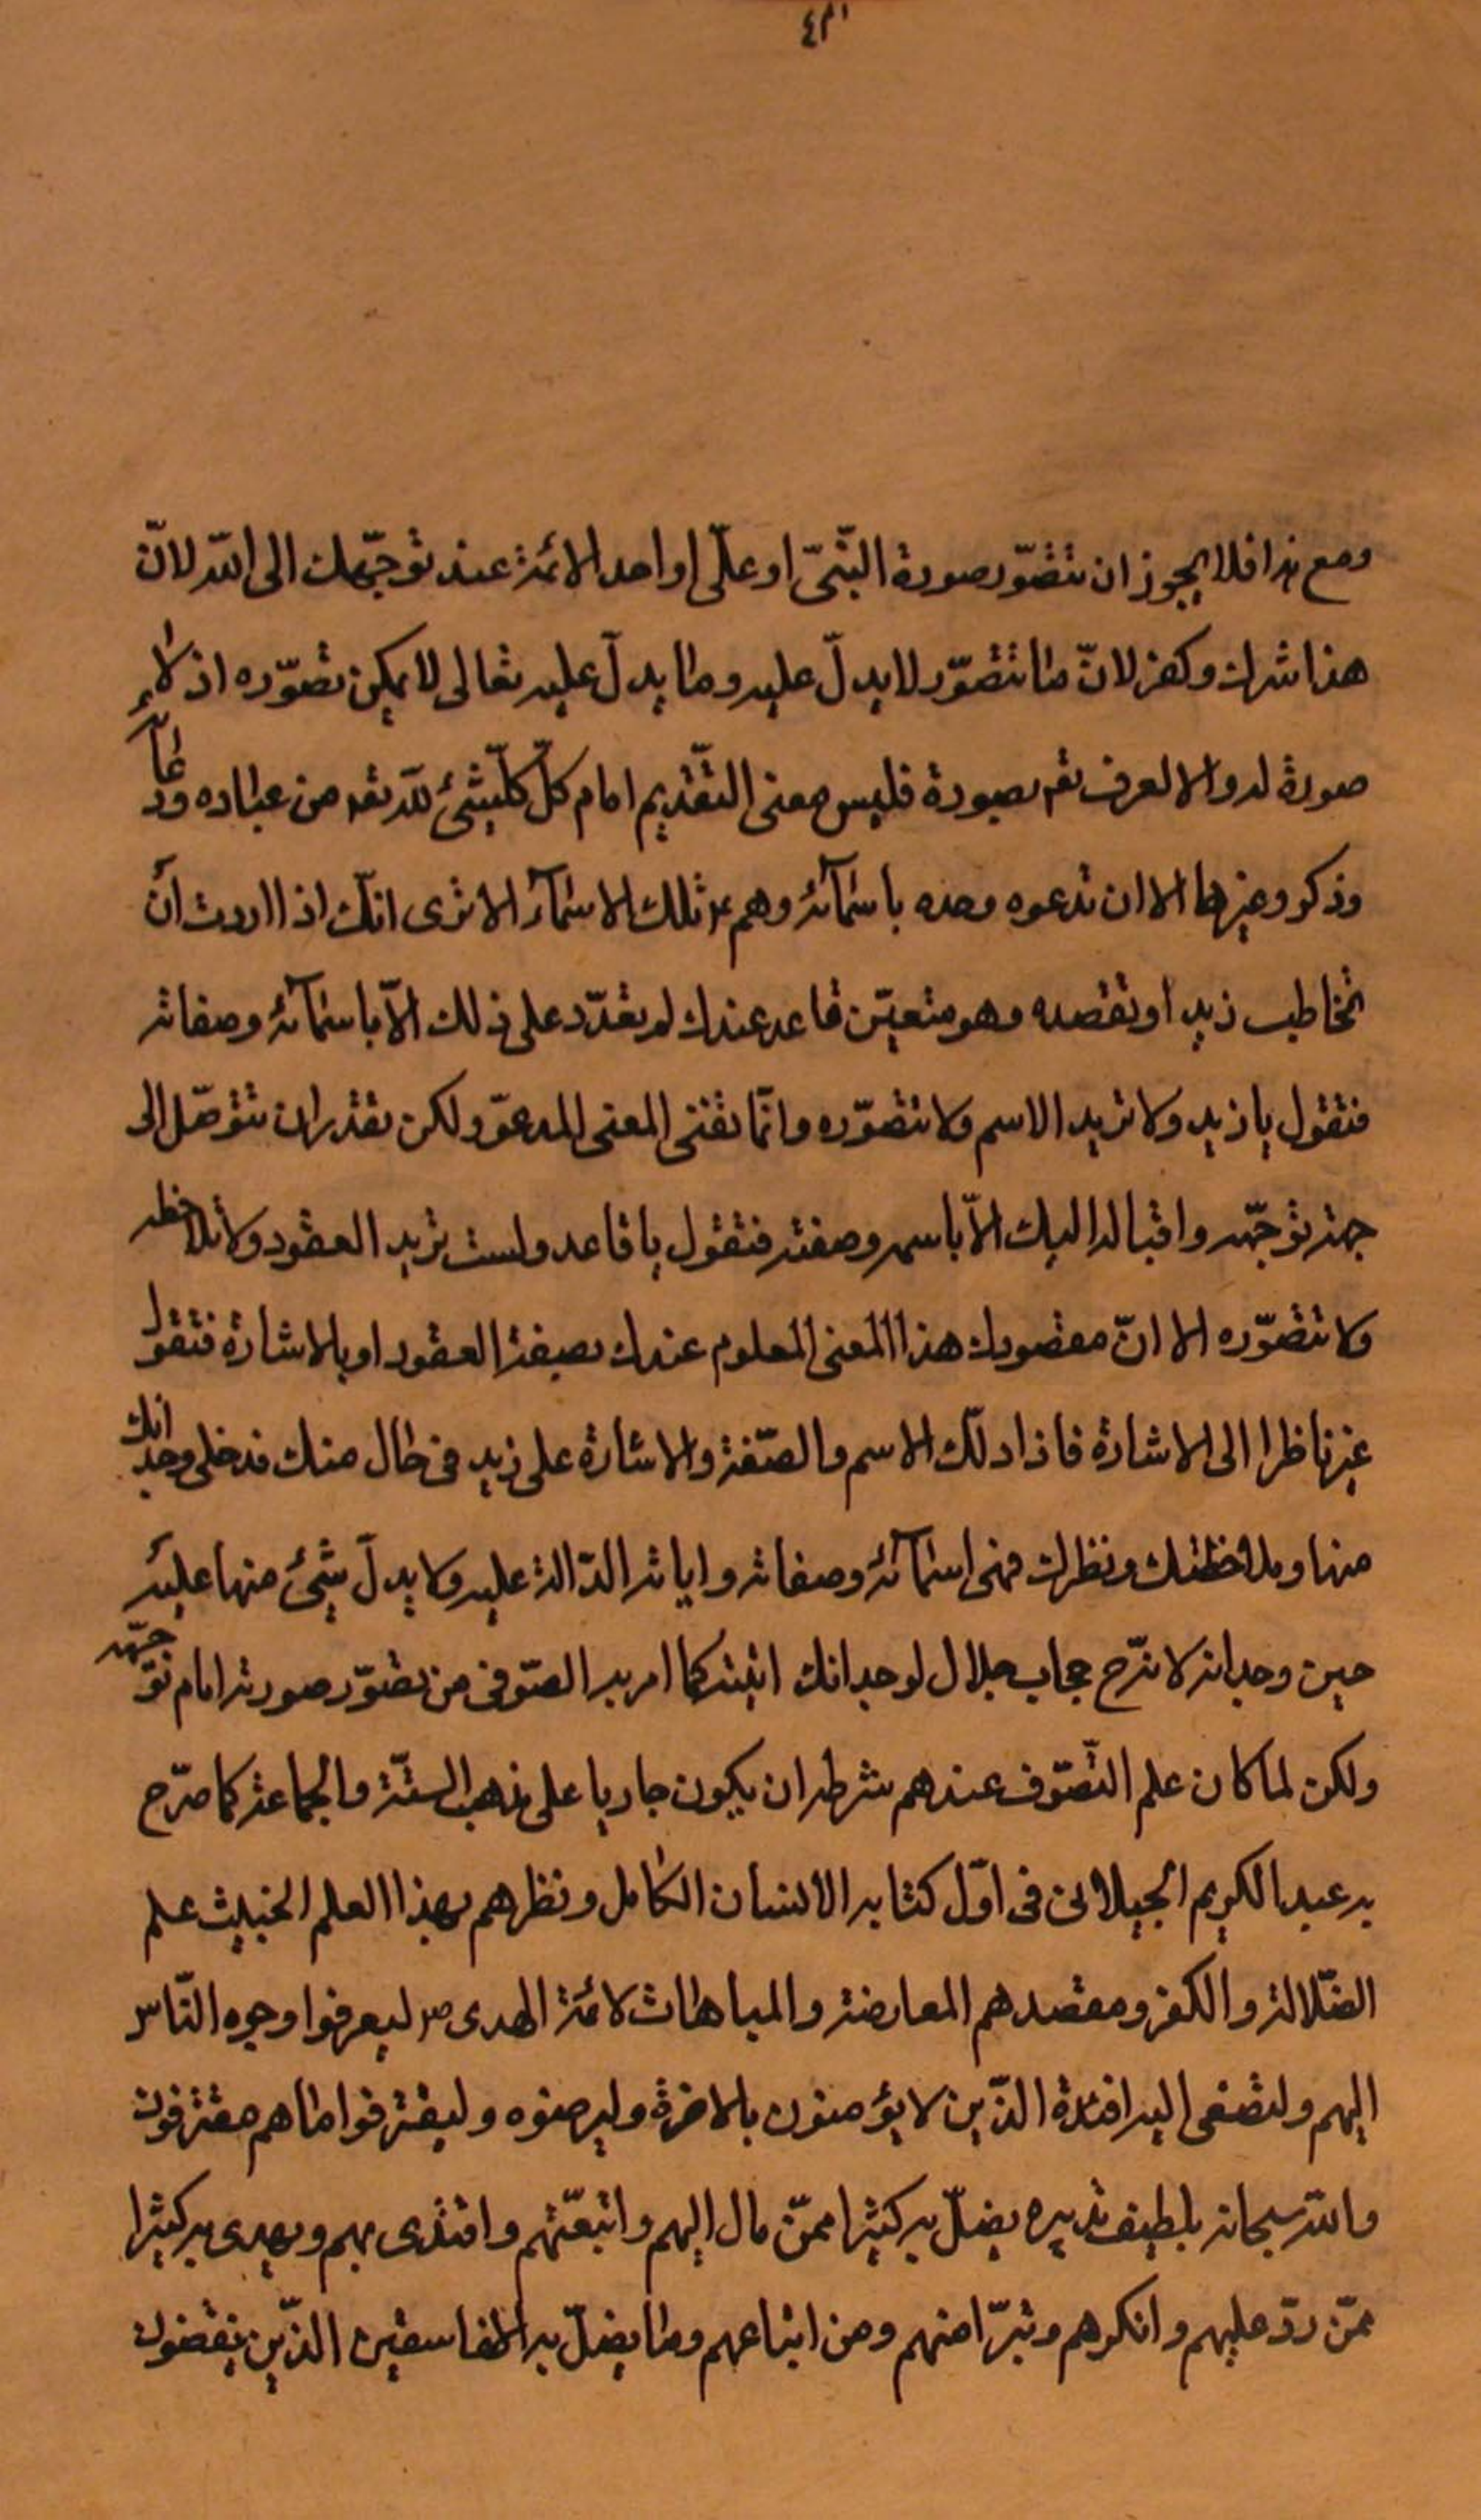 ٤٣
ومع هذا فلا يجوز ان تتصوّر صورة النّبىّ او علىّ او احد الائمة عند توجّهك الى اللّه لانّ
هذا شرك وكفر لانّ ما تتصوّر لا يدلّ عليه وما يدلّ عليه تعالى لا يمكن تصوّره اذ لا
صورة له والا لعرف تعه بصورة فليس معنى التّقديم امام كلّ كلّشئ للّه تعه من عباده ودعآء
وذكر وغيرها الا ان تدعوه وحده باسمآئه وهم ع تلك الاسمآء الا ترى انّك اذا اردت ان
تخاطب زيد او تقصده وهو متعيّن قاعد عندك لم تقدر على ذلك الّا باسمآئه وصفاته
فتقول يا زيد ولا تريد الاسم ولا تتصوّره وانّما تعنى المعنى المدعوّ ولكن تقدر ان تتوصّل الى
جهة توجّهه واقباله اليك الّا باسمه وصفته فتقول يا قاعد ولست تريد العقود ولا تلاحظه
ولا تتصوّره الا انّ مقصودك هذا المعنى المعلوم عندك بصفة العقود او بالاشارة فتقول
غير ناظرا الى الاشارة فاذا دلّك الاسم والصّفة والاشارة على زيد فى حال منك قد خلى وجدانك
منها وملاحظتك ونظرك فهى اسمآئه وصفاته واياته الدّالة عليه ولا يدلّ شئ منها عليه
حين وجدانه لا تّرح حجاب جلال لوجدانك انيته كما امر به الصّوفى من تصوّر صورته امام توّجهه
ولكن لما كان علم التّصوّف عندهم شرطه ان يكون جاريا على مذهب السنّة والجماعة كما صرّح
به عبد الكريم الجيلانى فى اوّل كتابه الانسان الكامل ونظرهم بهذا العلم الخبيث علم
الضّلالة والكفر ومقصدهم المعارضة والمباهات لائمة الهدى ع ليعرفوا وجوه النّاس
اليهم ولتصغى اليه افئدة الذّين لا يؤمنون بالاخرة وليرضوه وليقترفوا ما هم مقترفون
واللّه سبحانه بلطيف تدبيره يضلّ به كثيرا ممّن مال اليهم واتبعّتهم واقتدى بهم ويهدى به كثيرا
ممّن ردّ عليهم وانكرهم وتبرّا منهم ومن اتباعهم وما يضلّ به الفاسقين الذّين ينقضون